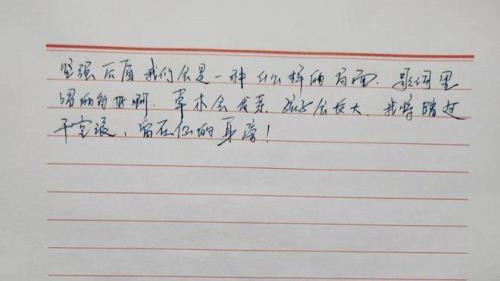 坚强后盾我们会是一种什么样的局面。歌词里
写的多好啊,草木会发芽,孩子会长大,我将踏过
千重浪,留在你的身旁!